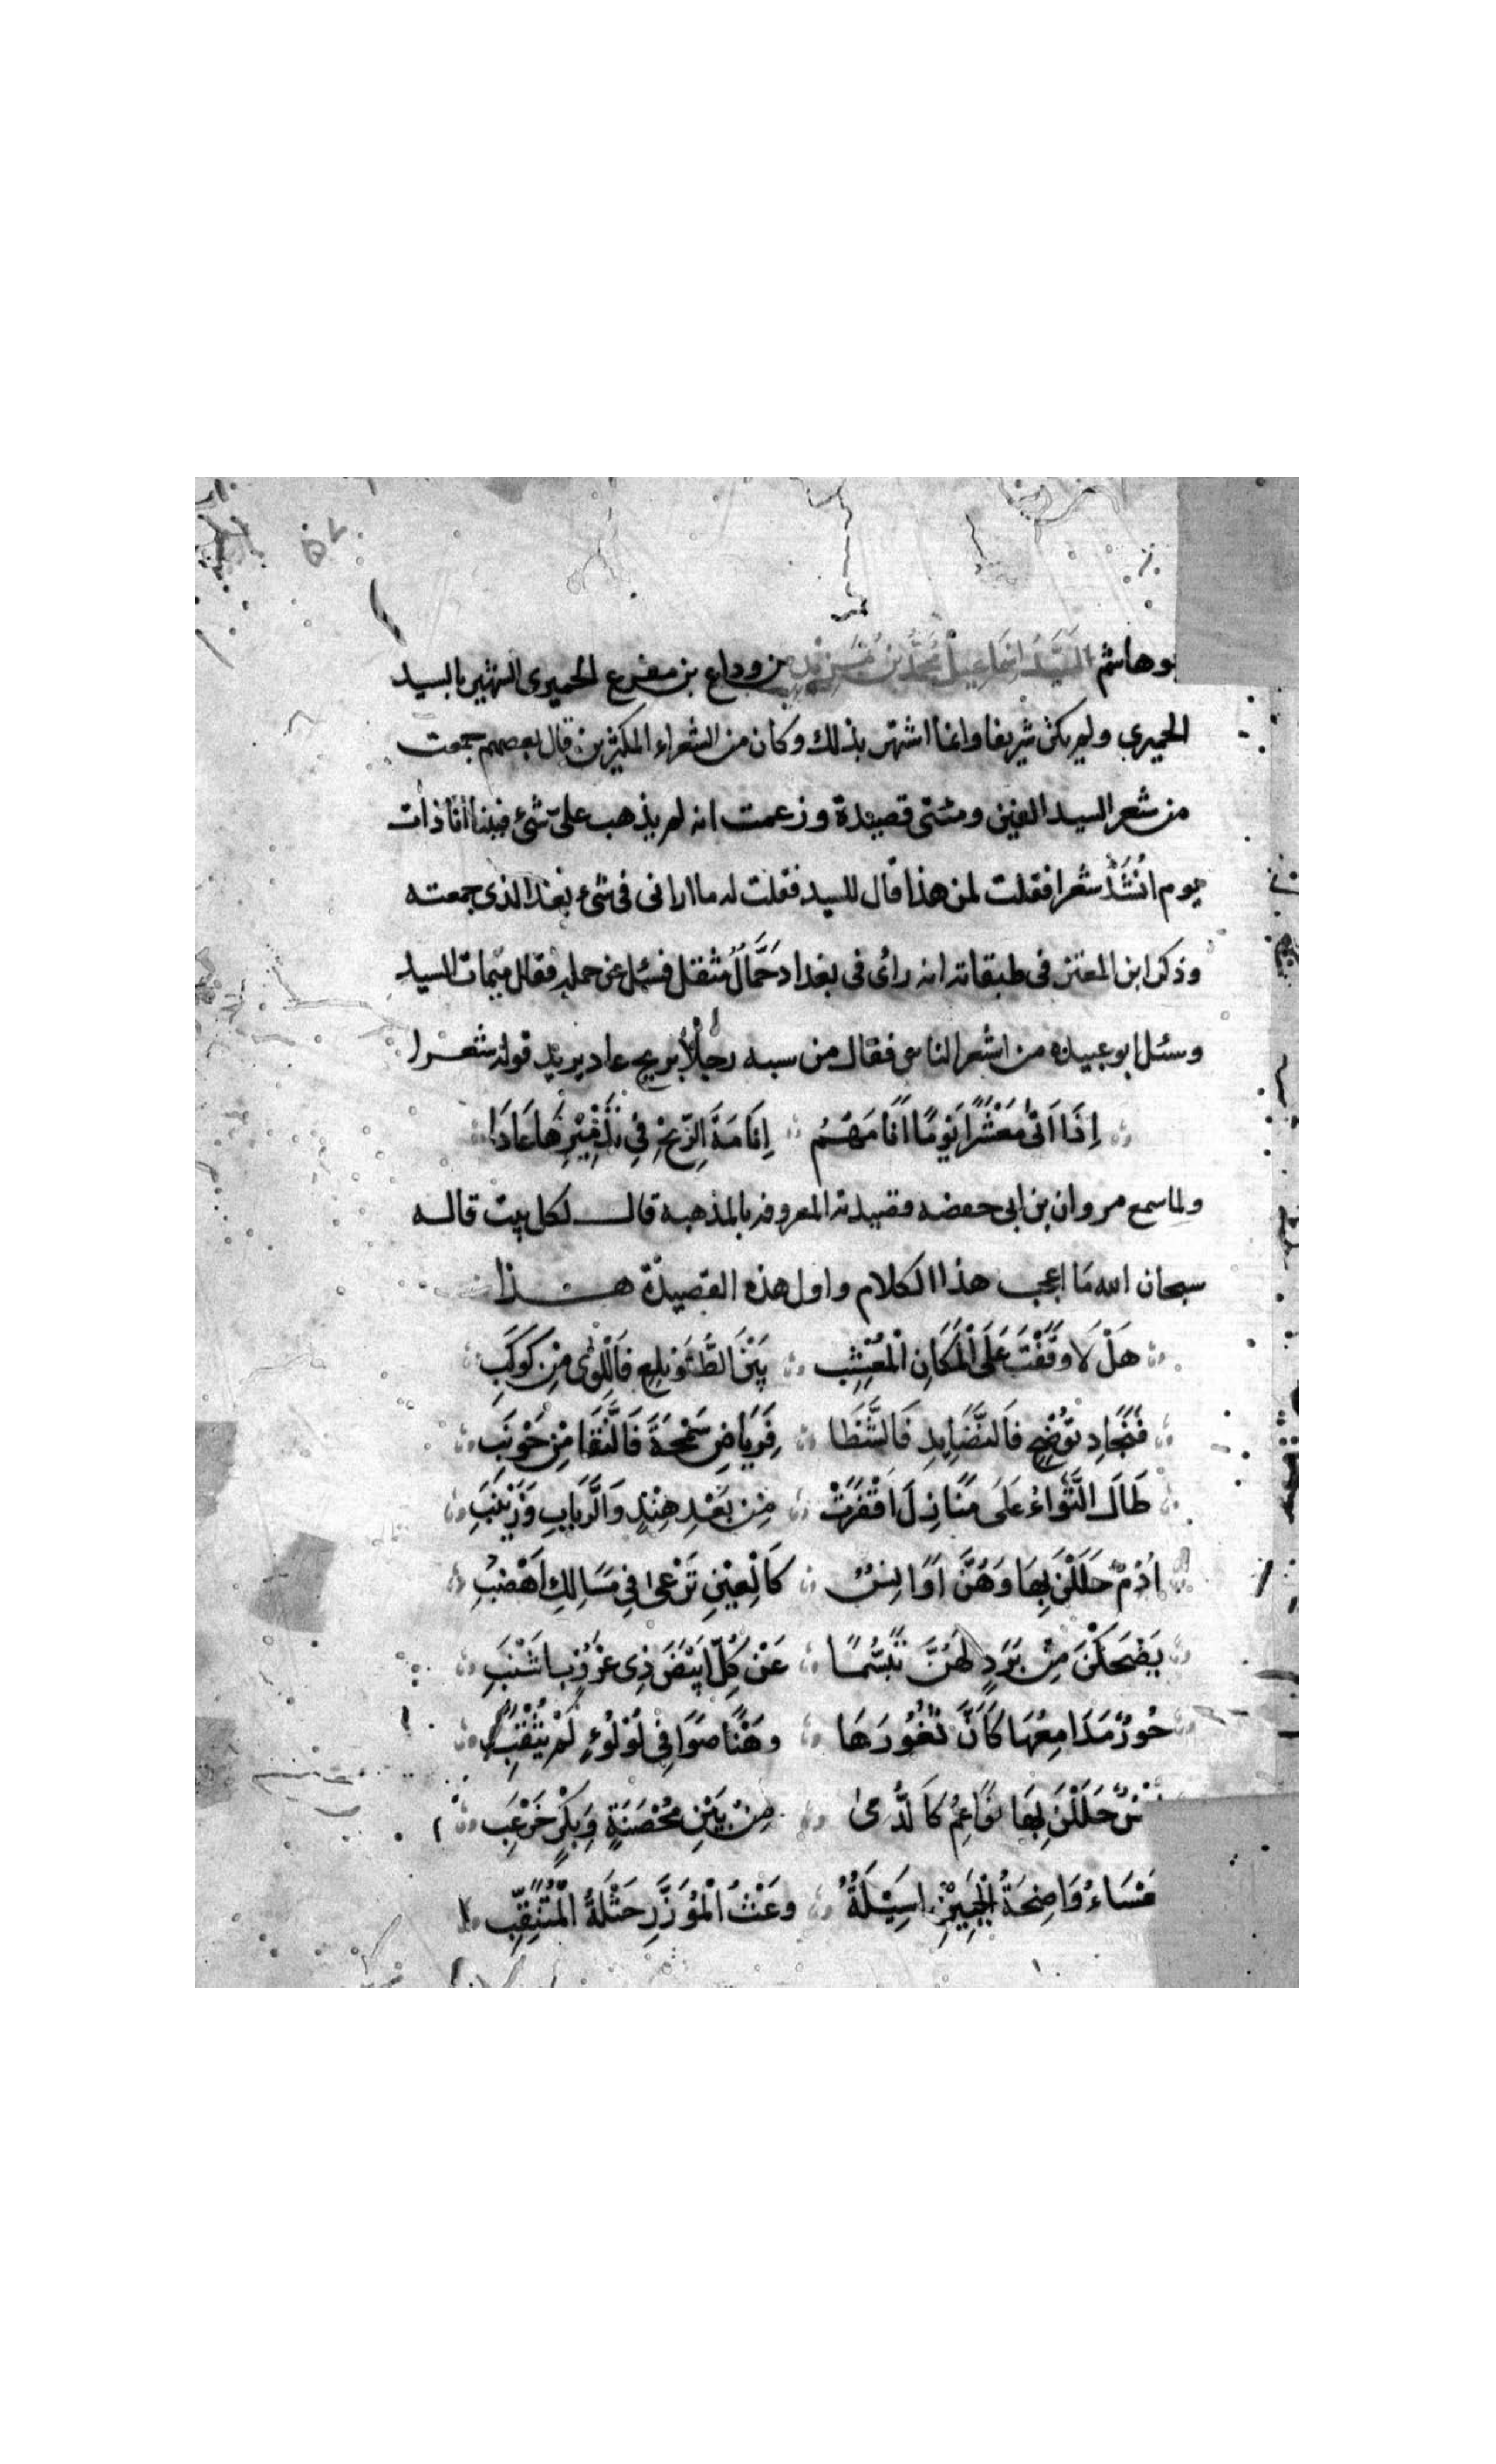 وهاشم السيد اسماعيل بن محمد بن يزيد بن وداع بن مفرغ الحميرى الشهير بالسيد
الحميرى ولم يكن شريفا وانما اشتهر بذلك وكان من الشعراء المكثرين قال بعضهم جمعت
من شعر السيد الفين ومئتى قصيدة وزعمت انه لم يذهب علىّ شئ فبينا انا ذات
يوم انشد شعرا فقلت لمن هذا قال للسيد فقلت له ما ارانى فى شئ بعد الذى جمعته
وذكر ابن المعتز فى طبقاته انه رأى فى بغداد حمّالٌ مثقل فسئل عن حمله فقال ميمات السيد
وسئل ابو عبيدة من اشعر الناس فقال من سبه رجلاً بريح عاد يريد قوله شعرا
اِذَا اَتٰى مَعْشَرًا يَوْمًا اَنَامَهُمُ اِنَامَةَ الرِّيْحِ فِي تَدْمِيْرِهَا عَادَا
ولما سمع مروان بن ابى حفصه قصيدته المعروفه بالمذهبة قال لكل بيت قاله
سبحان الله مَا اعجب هذا الكلام واول هذه القصيدة هذا
هَلْ لَا وَقَفْتَ عَلَى الْمَكَانِ الْمُعْشِبِ بَيْنَ الطُّوَيْلِعِ فَالِلّوٰى مِنْ كَوْكَبِ
فَنَجَادِ تَوْضِحَ فَالنَّضَايِدِ فَالشَّظَا فَرِيَاضِ سَمْحَةَ فَالنَّقَا مِنْ حَوْنَبِ
طَالَ الثَّوَاءُ عَلَى مَنَازِلَ اَقْفَرَتْ مِنْ بَعْدِ هِنْدٍ وَالرَّبَابِ وَزَيْنَبِ
اُدْمٌ حَلَلْنَ بِهَا وَهُنَّ اَوَانِسٌ كَالْعِيْنِ تَرْعٰى فِي مَسَالِكِ اَهْضُبِ
يَضْحَكْنَ مِنْ بَرَدٍ لَهُنَّ تَبَسُّمًا عَنْ كُلِّ اَبْيَضَ ذِى غُرُوْبٍ اَشْنَبِ
حُوْرٌ مَدَامِعُهَا كَاَنَّ ثُغُوْرَهَا وَهْنًا صَوَافِى لُوْلُوْءٍ لَمْ يُثْقَبِ
حَلَلْنَ بِهَا نَوَاعِمُ كَالدُّمٰى مِنْ بَيْنِ مُحْصَنَةٍ وَبِكْرٍ خَرْعَبِ
وَاضِحَةُ الْجَبِيْنِ اَسِيْلَةٌ وَعْثُ الْمُؤَزَّرِ حَثْلَةُ الْمُتَنَقَّبِ